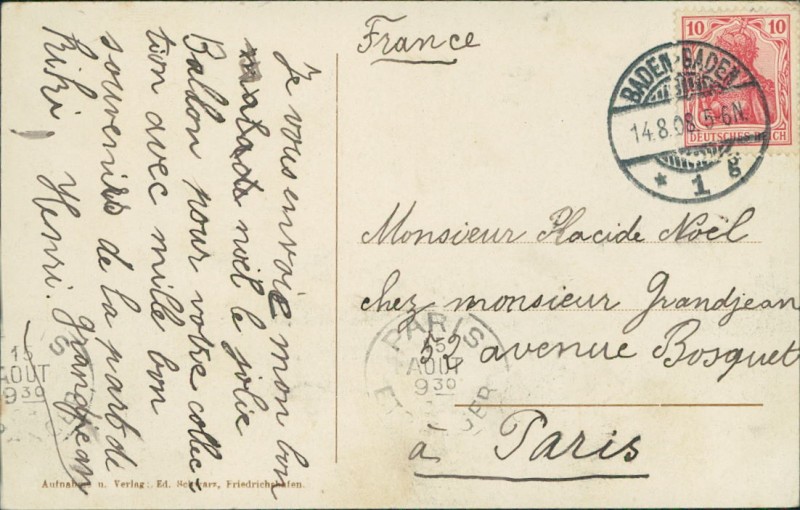 France
10 10
DEUTSCHES REICH
BADEN-BADEN
14.8.08. 5-6N.
* 1 g
Monsieur Placide Noël
chez monsieur Grandjean
52 avenue Bosquet
à Paris
PARIS
15
AOUT
9 30
ETRANGER
Je vous envoie mon bon
noël le jolie
Ballon pour votre collec
tion avec mille bon
souvenirs de la part de
Kiki, Henri. Grandjean
15
AOUT
9 30
Aufnahme u. Verlag: Ed. Schwarz, Friedrichshafen.